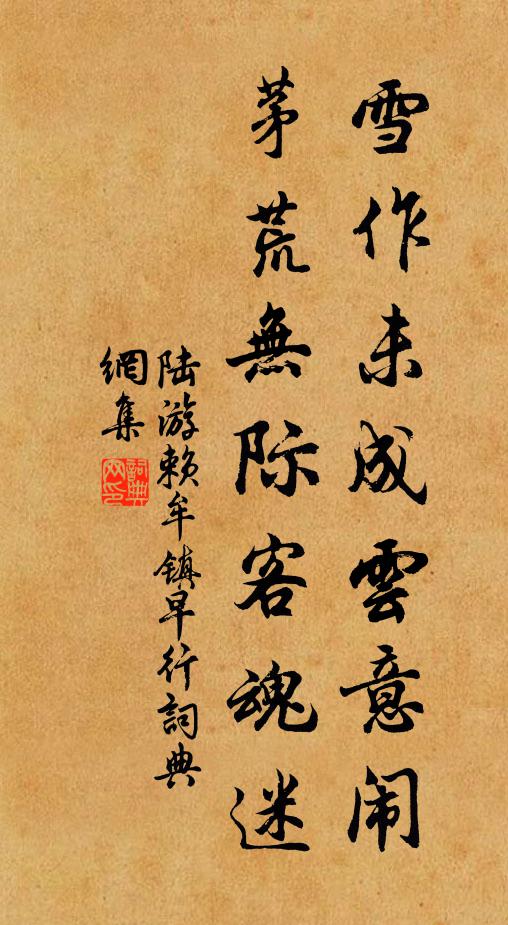 雪作未成雲意闹
茅荒無际客魂迷
陆游赖牟镇早行詞典
網集
詞典
网印